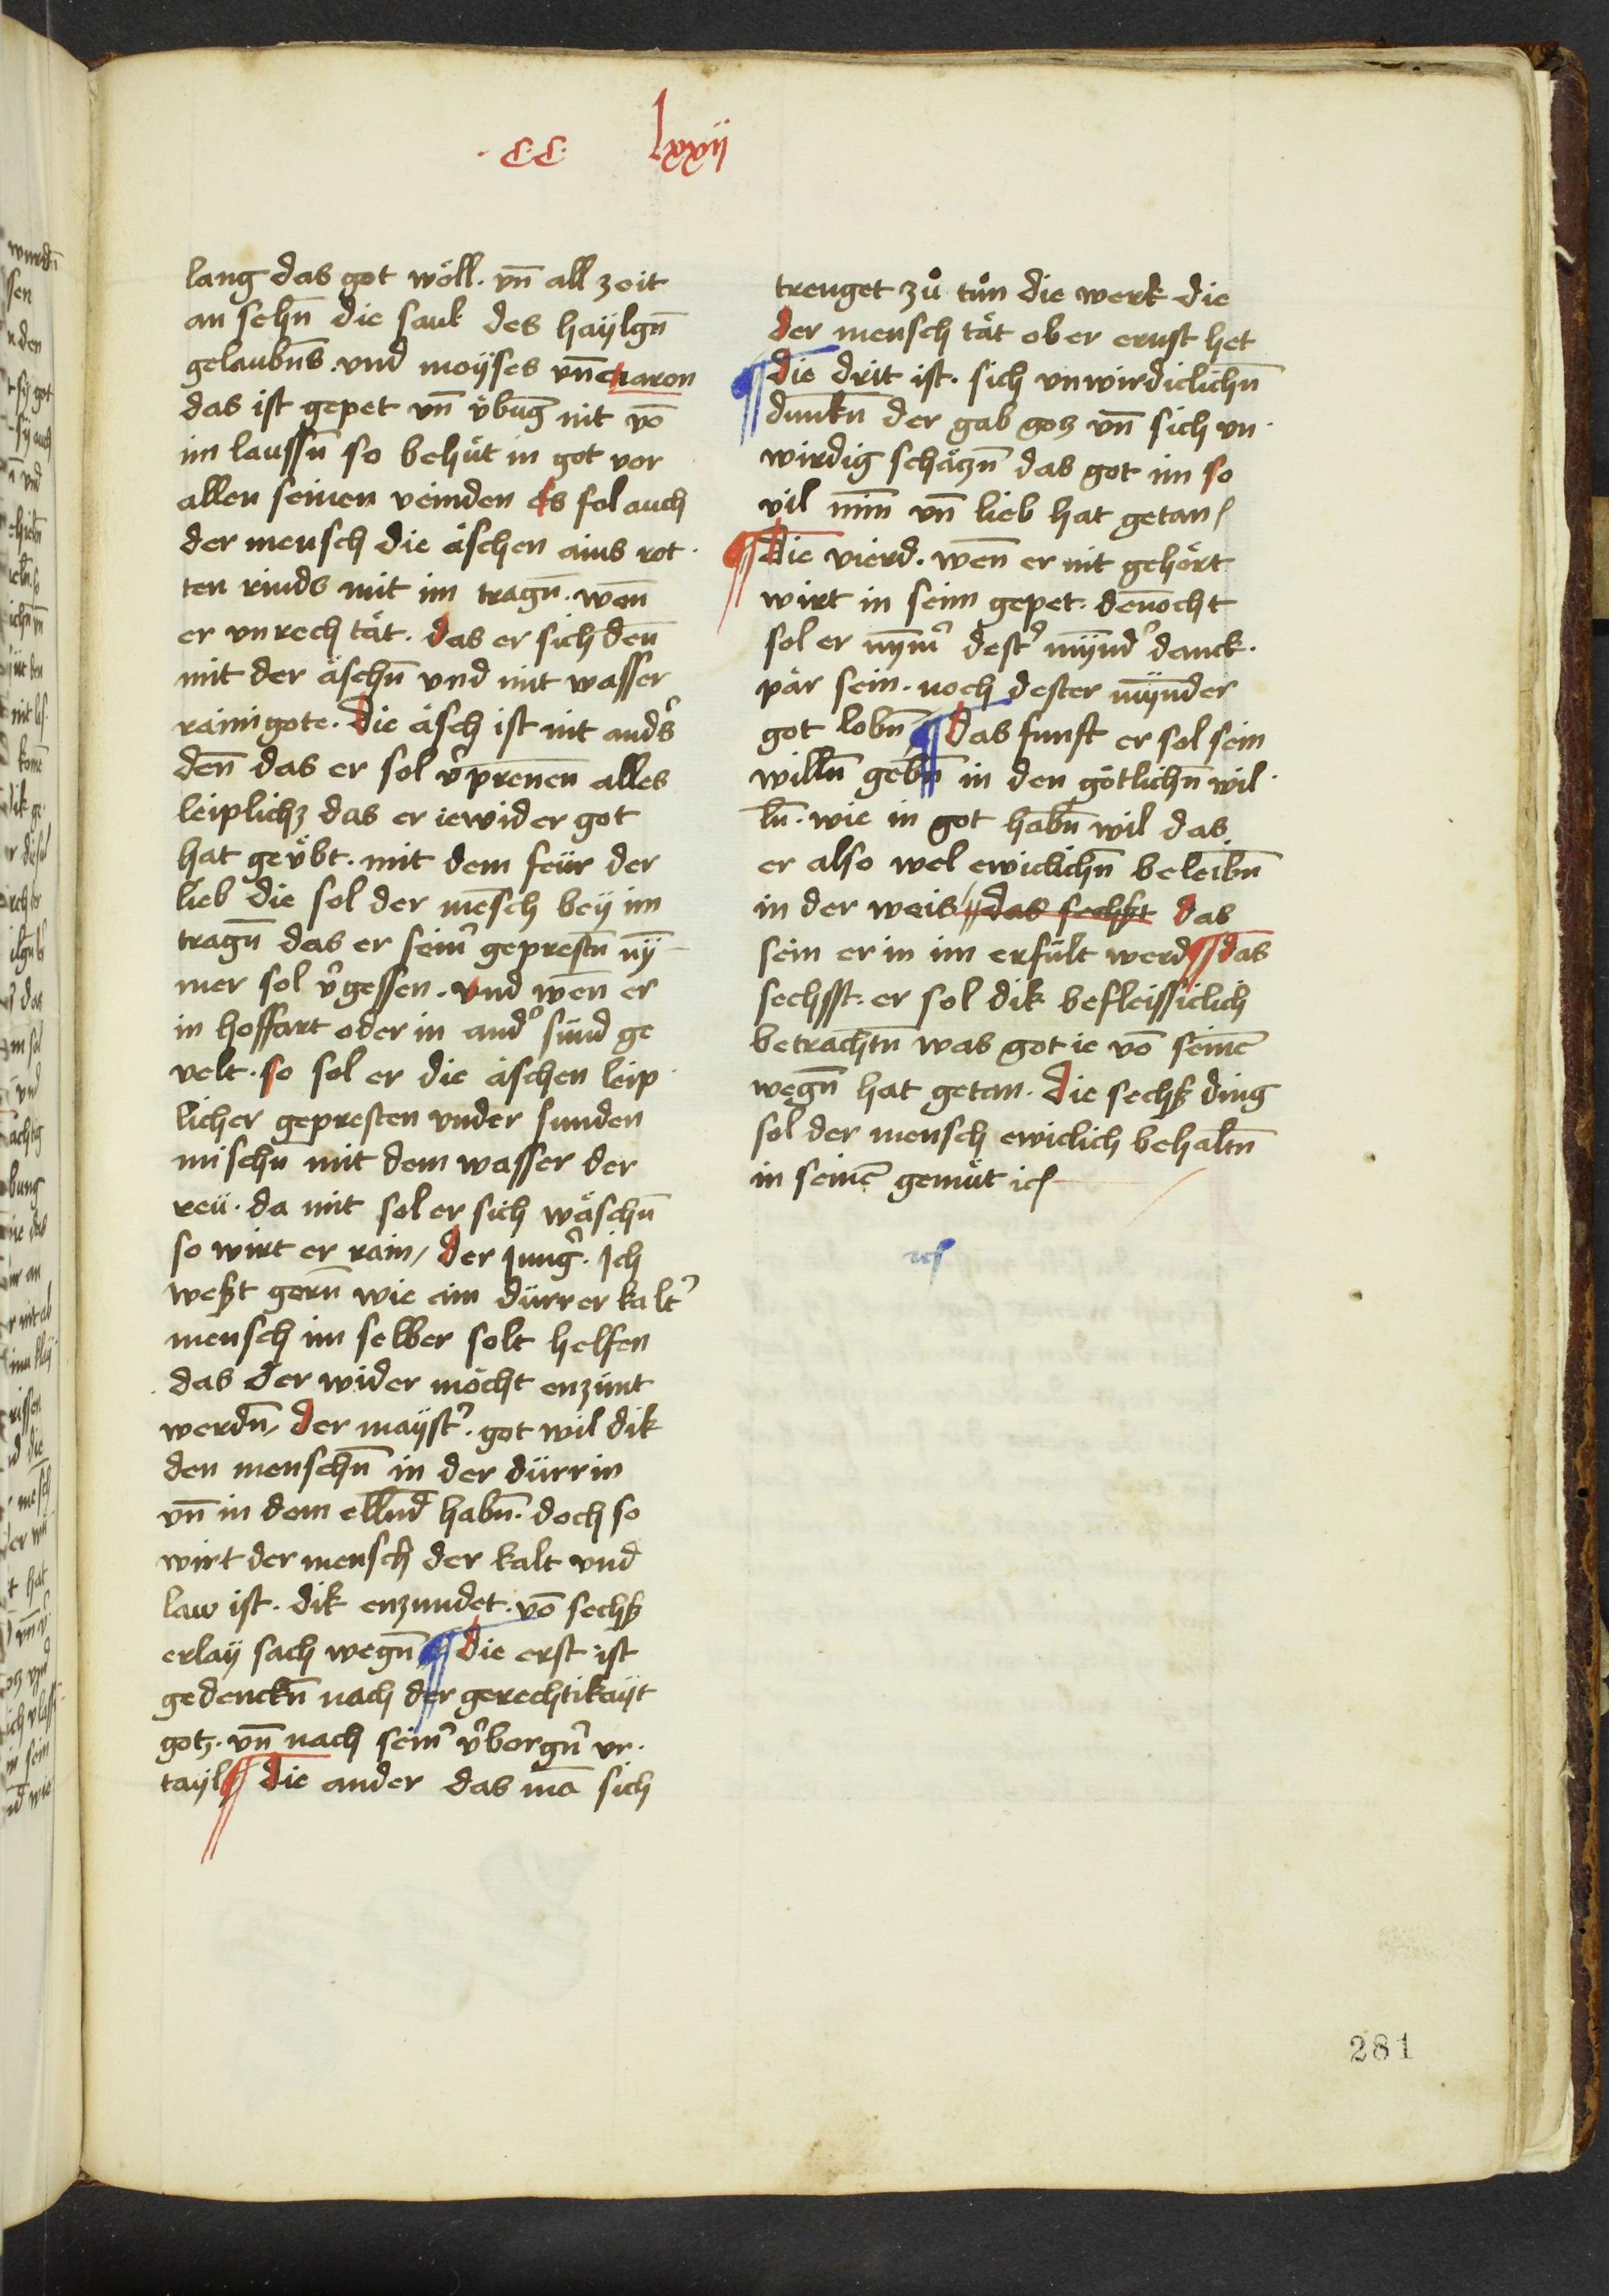 ·C·C· lxxij
lang das got wöll. vn̄ all zeit
an sehn̄ die saul des haÿlgn̄
gelaubn̄s. vnd moÿses vn̄ aaron
das ist gepet vn̄ v̈bung nit vō
im laussn̄ so behüt in got vor
allen seinen veinden Es sol auch
der mensch die äschen ains rot·
ten rinds mit im tragn̄. wen̄
er vnrech tät. das er sich den̄
mit der äschn̄ vnd mit wasser
rainigote. Die äsch ist nit anders̓
den̄ das er sol v̓prennen alles
leiplichz das er ie wider got
hat geübt. mit dem feür der
lieb die sol der mēsch beÿ im
tragn̄ das er seinr̓ geprestn̄ nÿ
mer sol v̓gessen. vnd wen̄ er
in hoffart oder in and̓ sünd ge
velt. so sol er die äschen leip·
licher gepresten vnder sunden
mischn̄ mit dem wasser der
reü. da mit sol er sich wäschn̄
so wirt er rain/ Der Jung̓. Jch
weßt gern̄ wie ein dürrer kalt̓
mensch im selber solt helfen
das der wider möcht enzünt
werdn̄/ Der maÿst̓. got wil dik
den menschn̄ in der dürrin
vn̄ in dem ellend habn̄. doch so
wirt der mensch der kalt vnd
law ist. dik enzundet. vō sechß
erlaÿ sach wegn̄ ¶ Die erst ist
gedenckn̄ nach der gerechtikaÿt
gotz. vn̄ nach seinr̓ v̓borgn̄ vr·
taÿl ¶ Die ander das mā sich
trenget zů tůn die werk die
der mensch tät ob er ernst het
¶ Die drit ist. sich vnwirdiclichn̄
dunkn̄ der gab gotz vn̄ sich vn·
wirdig schätzn̄ das got im so
vil min̄ vn̄ lieb hat getan/
¶ Die vierd. wen̄ er nit gehört
wirt in seim gepet. den̄ocht
sol er nym̄̓ dest̓ mÿnd̓ danck·
pär sein. noch dester mÿnder
got lobn̄ ¶ Das funft er sol sein
willn̄ gebn̄ in den götlichn̄ wil·
ln̄. wie in got habn̄ wil das
er also wel ewiclichn̄ beleibn̄
in der weis // das sechst das
sein er in im erfült werd ¶ das
sechsst. er sol dik befleissiclich
betrachtn̄ was got ie vō seinē
wegn̄ hat getan. Die sechß ding
sol der mensch ewiclich behaltn̄
in seinē gemüt ic/
281